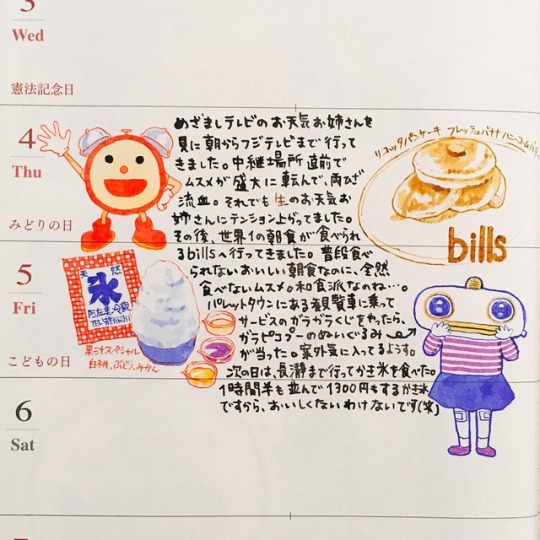 3
Wed
憲法記念日
4
Thu
みどりの日
めざましテレビのお天気お姉さんを
見に朝からフジテレビまで行って
きました。中継場所直前で
ムスメが盛大に転んで、両ひざ
流血。それでも生のお天気お
姉さんにテンション上がってました。
その後、世界1の朝食が食べられ
るbillsへ行ってきました。普段食べ
られないおいしい朝食なのに、全然
食べないムスメ。和食派なのね…。
パレットタウンにある観覧車に乗って
サービスのガラガラくじをやったら、
ガラピコプーのぬいぐるみ
が当たった。案外気に入ってるようす。
次の日は、長瀞まで行ってかき氷を食べた。
1時間半も並んで1300円もするかき氷
ですから、おいしくないわけないです(笑)
リコッタパンケーキ フレッシュバナナ ハニーコームバター
bills
5
Fri
こどもの日
天然
氷
阿左美冷蔵
果汁スペシャル
白桃、ぶどう、みかん
6
Sat